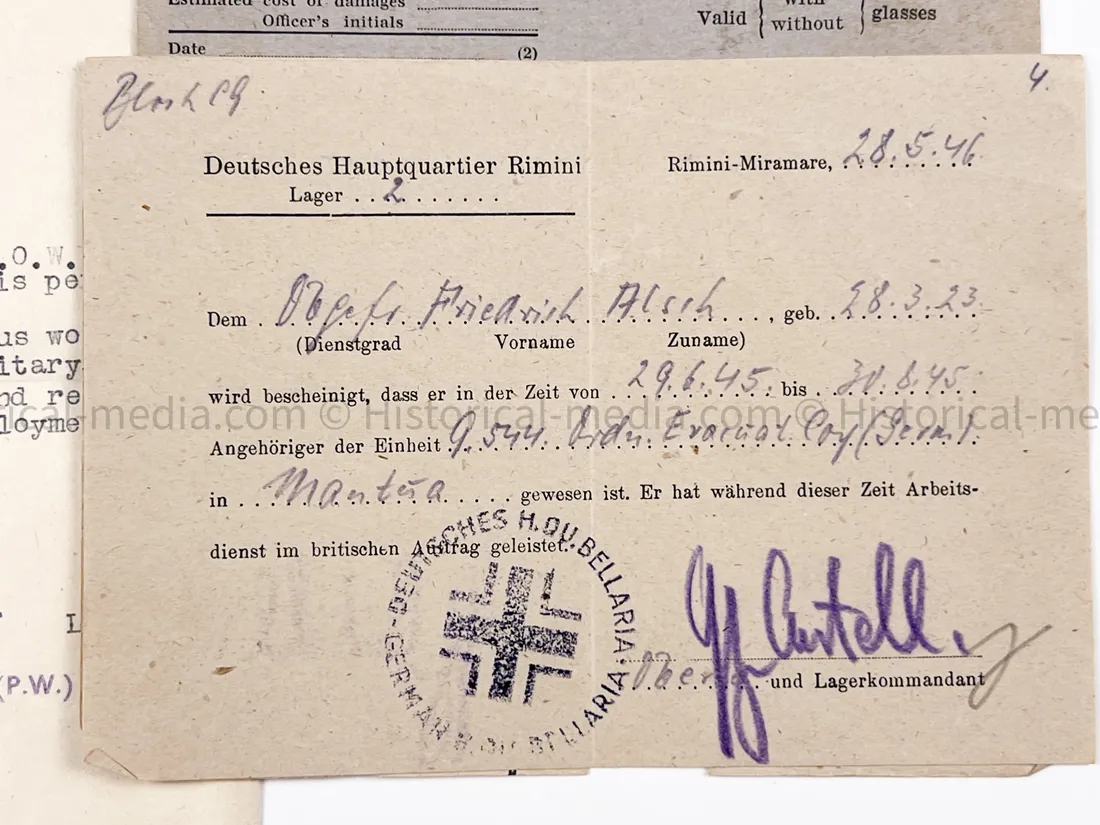 Estimated cost of damages
Officer's initials
Date (2)
Valid { with without } glasses
4.
Deutsches Hauptquartier Rimini
Rimini-Miramare, 28.5.46.
Lager 2
Dem Obgefr. Friedrich Alsch, geb. 28.3.23.
(Dienstgrad Vorname Zuname)
wird bescheinigt, dass er in der Zeit von 29.6.45. bis 30.8.45.
Angehöriger der Einheit 9.544. Ordn. Evacuat Coy (Germ).
in Mantua gewesen ist. Er hat während dieser Zeit Arbeits-
dienst im britischen Auftrag geleistet.
DEUTSCHES H.QU.BELLARIA
GERMAN H.QU.BELLARIA
und Lagerkommandant
.O.W.
is pe
us wo
itary
od re
loyme
L
(P.W.)
ical-media.com © Historical-media.com © Historical-me